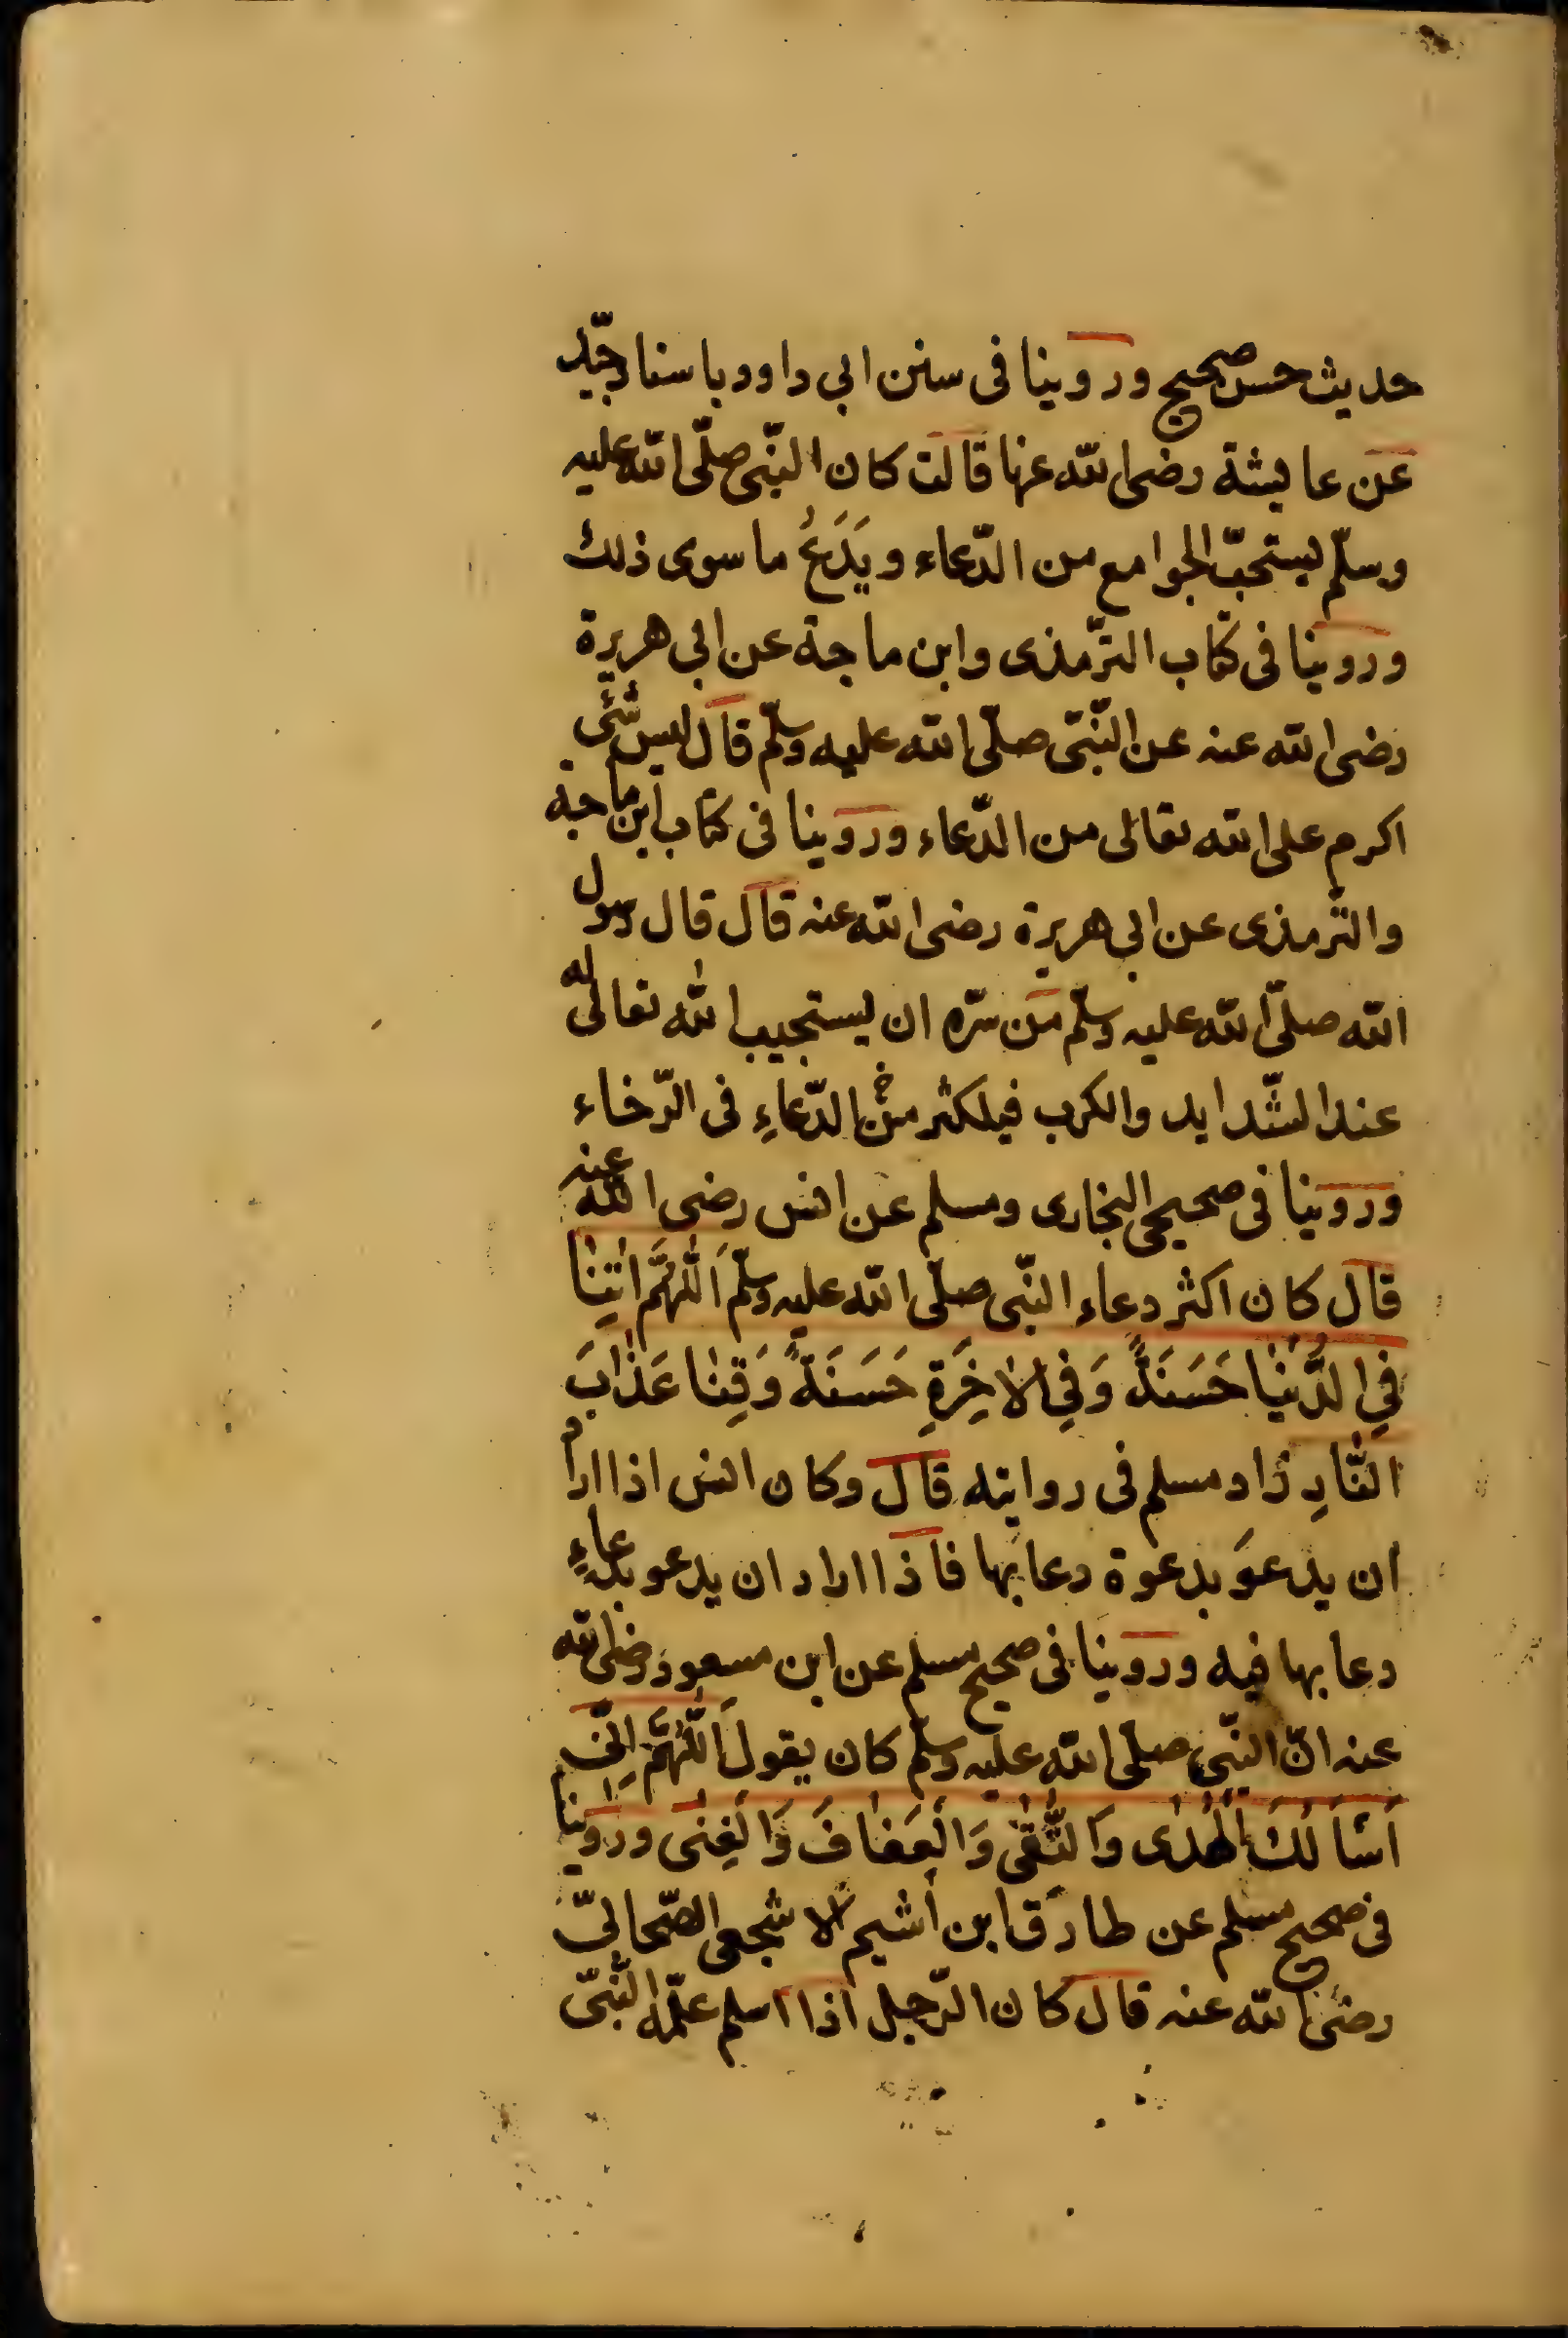 حديث حسن صحيح وروينا فى سنن ابى داوود باسناد جيّد
عن عايشة رضى الله عنها قالت كان النّبى صلّى الله عليه
وسلّم يستحبّ الجوامع من الدّعاء ويَدَعُ ما سوى ذلك
وروينا فى كتاب الترّمذى وابن ماجة عن ابى هريرة
رضى الله عنه عن النّبىّ صلّى الله عليه وسلّم قال ليس شىء
اكرم على الله تعالى من الدّعاء وروينا فى كتاب ابن ماجة
والترّمذى عن ابى هريرة رضى الله عنه قال قال رسول
الله صلّى الله عليه وسلّم من سرّه ان يستجيب الله تعالى له
عند الشّدايد والكرب فيلكثر من الدّعاءِ فى الرّخاء
وروينا فى صحيحى البخارى ومسلم عن انس رضى الله عنه
قال كان اكثر دعاء النّبى صلّى الله عليه وسلّم اَللّٰهُمَّ اٰتِنٰا
فِي الدُّنْيٰا حَسَنَةً وَفِي الاٰخِرَةِ حَسَنَةً وَقِنٰا عَذٰابَ
النّٰارِ زاد مسلم فى روايته قال وكان انس اذا اراد
ان يدعوَ بدعوة دعا بها فاذا اراد ان يدعو بدعاءٍ
دعا بها فيه وروينا فى صحيح مسلم عن ابن مسعود رضى الله
عنه انّ النّبى صلّى الله عليه وسلّم كان يقول اَللّٰهُمَّ اِنّى
اَسْاَلُكَ الْهُدٰى وَالتُّقٰى وَالْعَفٰافَ وَالْغِنٰى وروينا
فى صحيح مسلم عن طارق ابن أشيم الاشجعى الصّحابىّ
رضى الله عنه قال كان الرّجل اذا اسلم علّمه النّبىّ